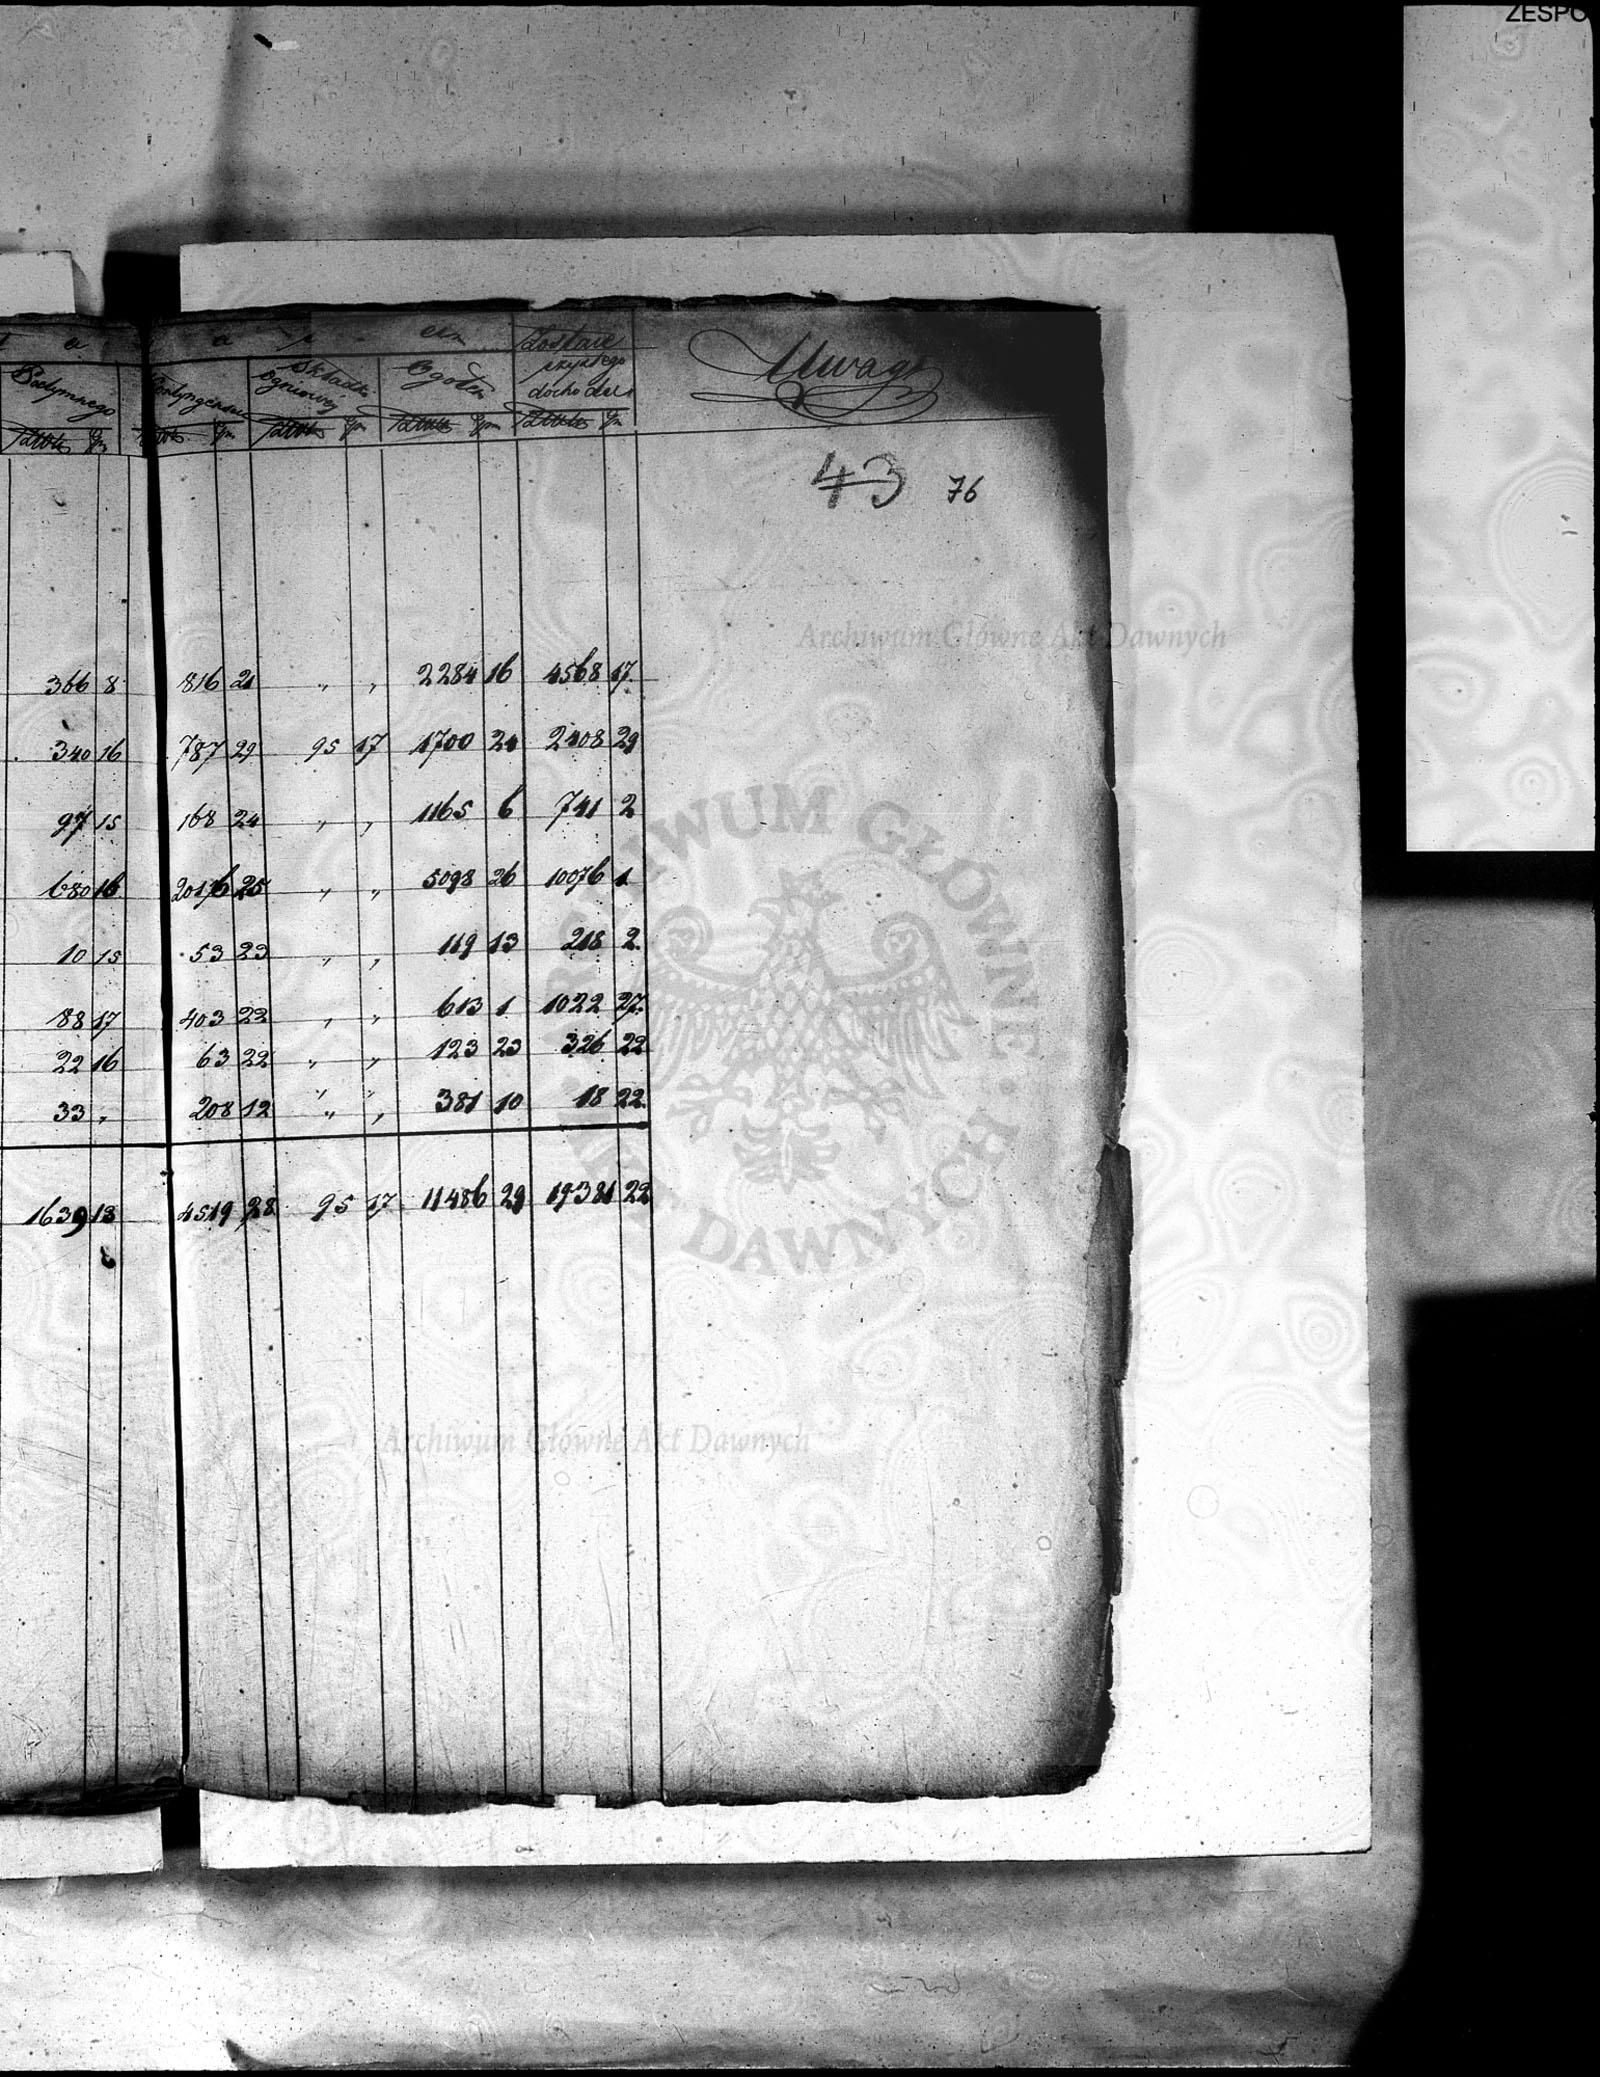 ZESPO
a a em Zostaie
Podymnego Kontyngensu Składki Ogniowéj Ogółem czystego dochodu Uwagi
Złote gr Złote gr Złote gr Złote gr Złote gr
43 76
366 8 816 21 " " 2284 16 4568 17
340 16 787 29 95 17 1700 24 2408 29
97 15 168 24 " " 1165 6 741 2
680 16 2016 25 " " 5098 26 10076 1
10 15 53 23 " " 119 13 218 2
88 17 403 22 " " 613 1 1022 27
22 16 63 22 " " 123 23 326 22
33 " 208 12 " " 381 10 18 22
1639 13 4519 28 95 17 11486 29 19381 22
Archiwum Główne Akt Dawnych
ARCHIWUM GŁÓWNE AKT DAWNYCH
Archiwum Główne Akt Dawnych